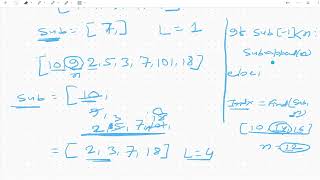 Sub = [7,] L = 1
[10, 9, 2, 5, 3, 7, 101, 18]
n
Sub = [10,
9,
2, 3, 7, 101,
= [2, 3, 7, 18] L=4
if Sub[-1]<n:
Sub.append(n)
else:
Index = Find(Sub,
[10, 14, 15]
n = 12